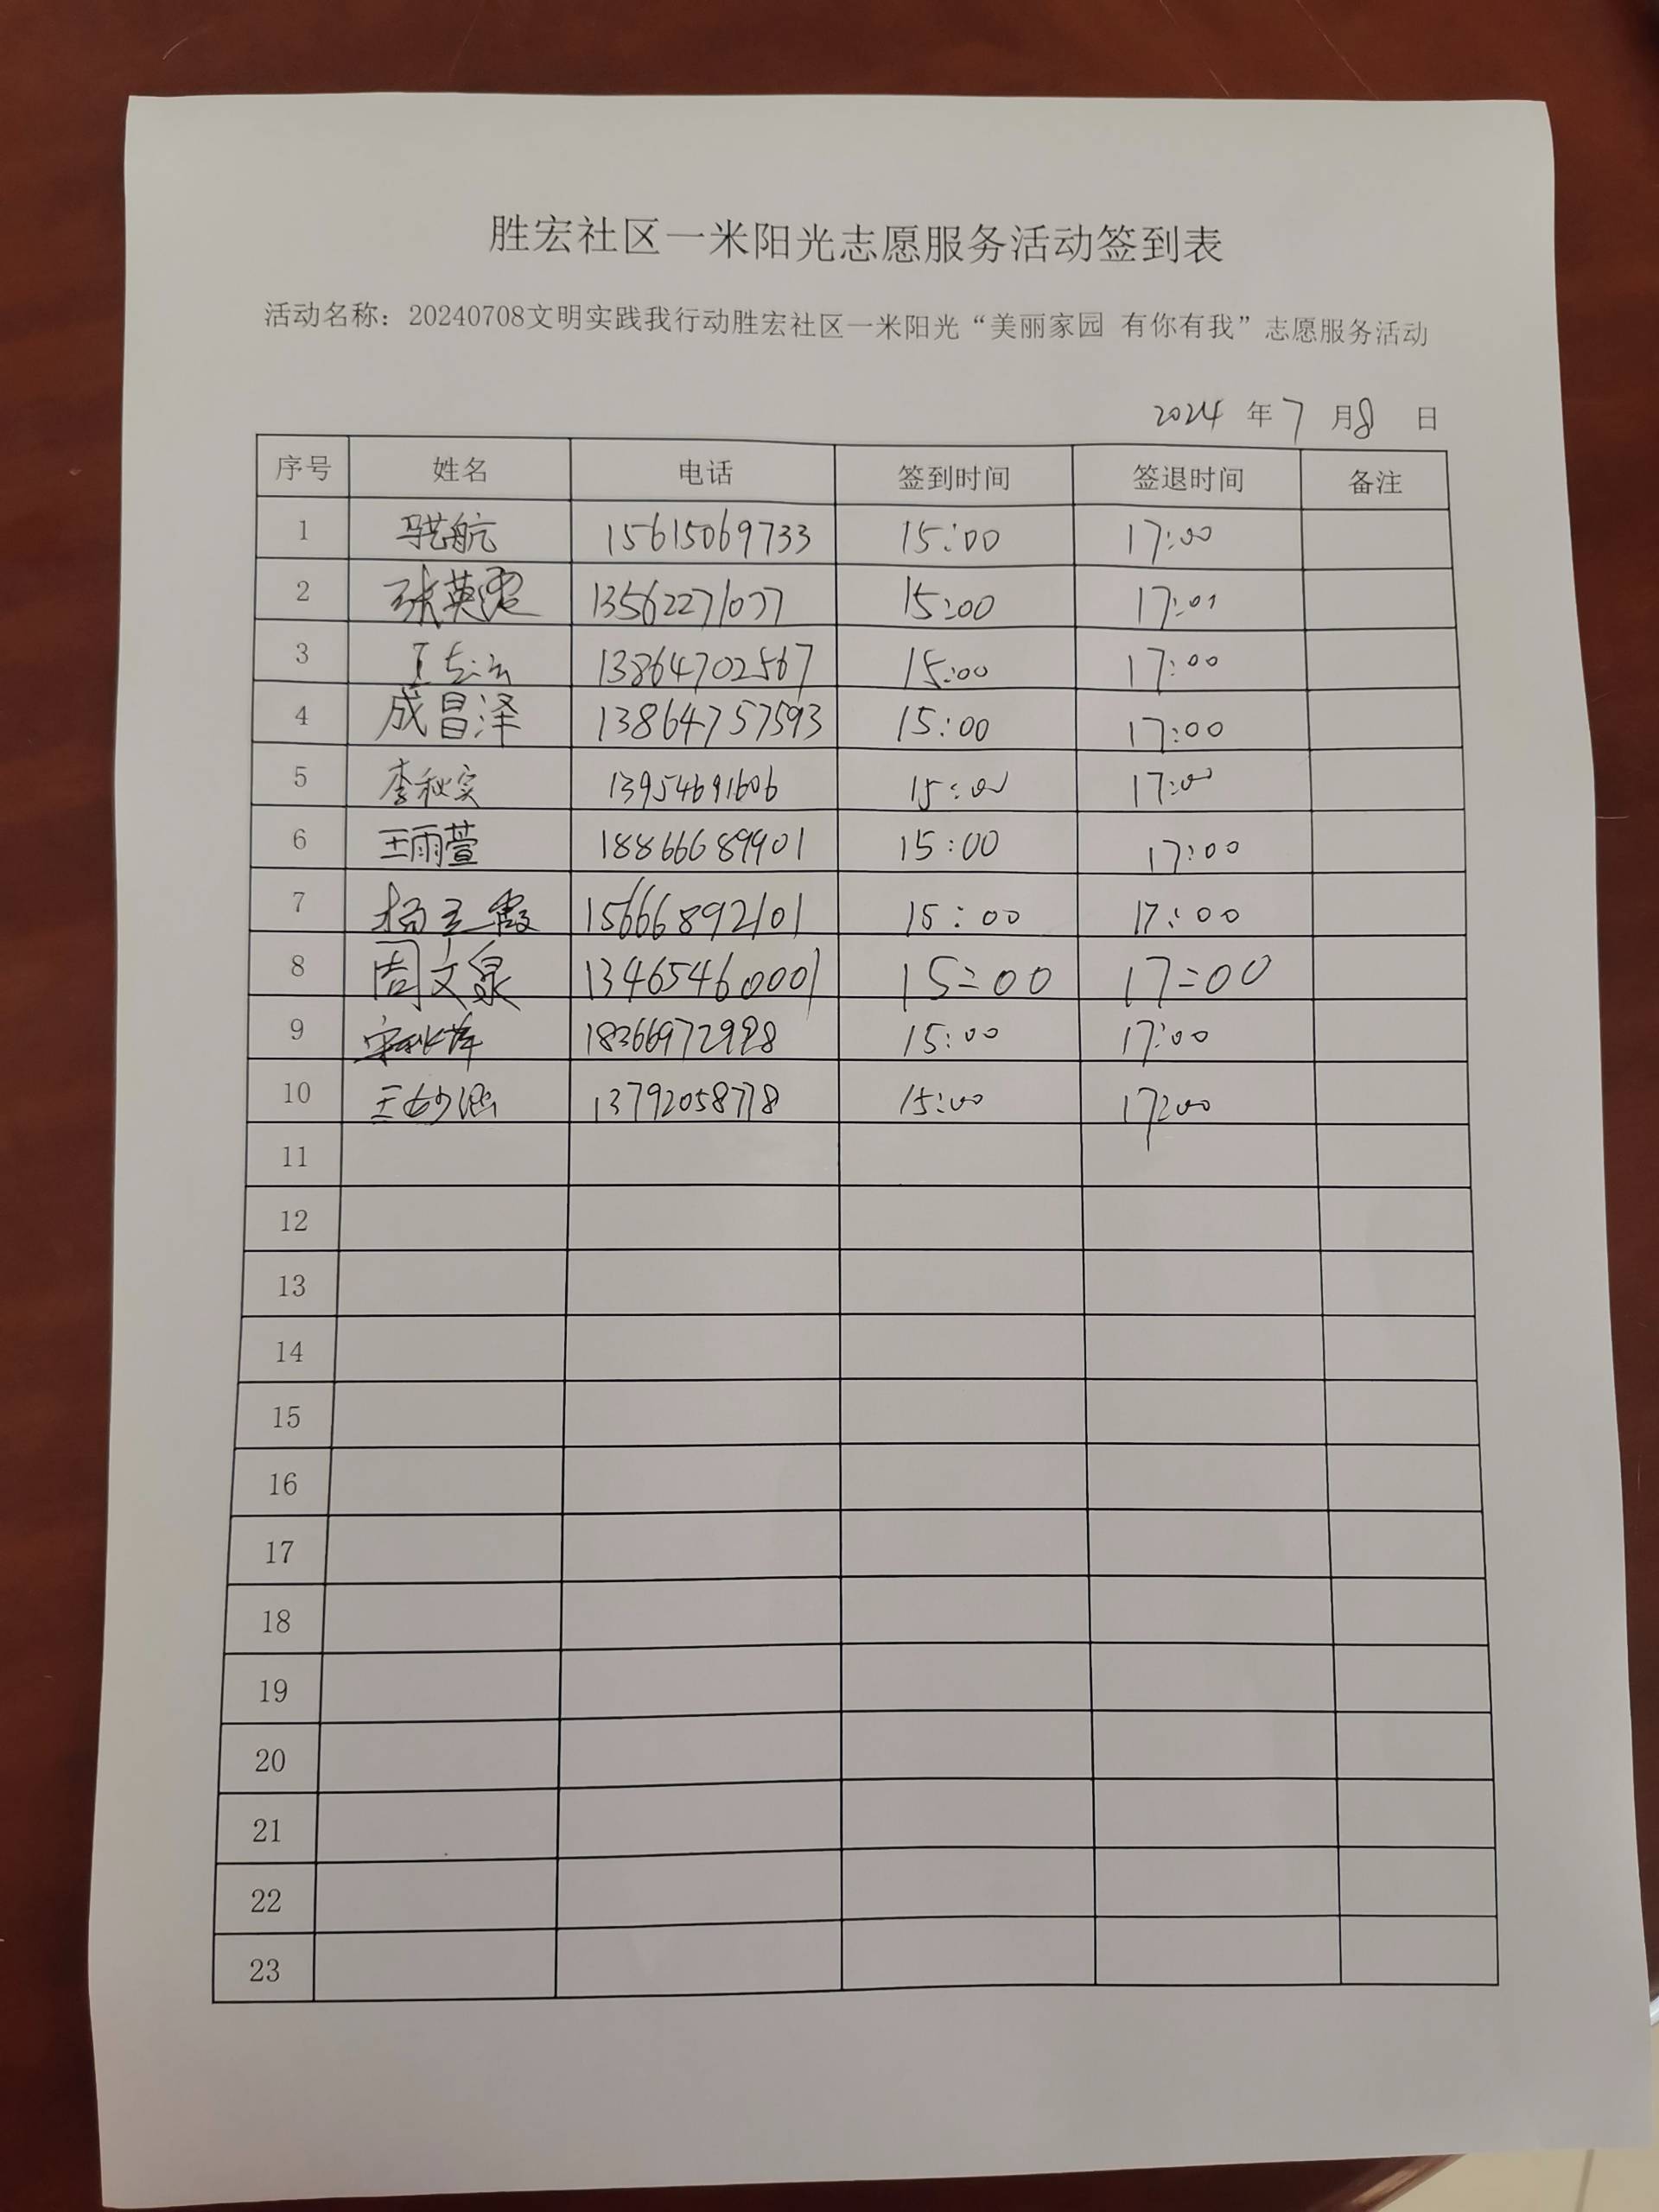 胜宏社区一米阳光志愿服务活动签到表
活动名称：20240708文明实践我行动胜宏社区一米阳光“美丽家园 有你有我”志愿服务活动
2024 年 7 月 8 日
序号 姓名 电话 签到时间 签退时间 备注
1 15615069733 15:00 17:00
2 张英 15:00 17:01
3 13864702567 15:00 17:00
4 成昌泽 13864757593 15:00 17:00
5 李秋实 13954691606 15:00 17:00
6 王雨萱 18866689901 15:00 17:00
7 杨立霞 15666892101 15:00 17:00
8 周文泉 13465460001 15:00 17:00
9 宋秋萍 15:00 17:00
10 王妙涵 13792058778 15:00 17:00
11
12
13
14
15
16
17
18
19
20
21
22
23